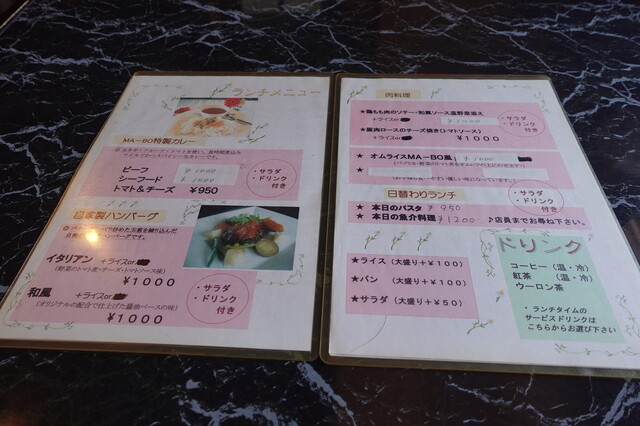 ランチメニュー
MA-BO特製カレー
ビーフ ¥1000
シーフード ¥1000
トマト&チーズ ¥950
・サラダ
・ドリンク
付き
自家製ハンバーグ
イタリアン +ライスor
(野菜のトマト煮・チーズ・トマトソース味)
¥1000
和風 +ライスor
(オリジナルの配合で仕上げた醤油ベースの味)
¥1000
・サラダ
・ドリンク
付き
肉料理
★鶏もも肉のソテー・和風ソース温野菜添え
+ライスor ¥1000
★豚肉ロースのチーズ焼き(トマトソース)
+ライスor ¥1000
・サラダ
・ドリンク
付き
★オムライスMA-BO風 ¥1000
★
日替わりランチ
★本日のパスタ ¥950
★本日の魚介料理 ¥1200
♪店員までお尋ね下さい。
・サラダ
・ドリンク
付き
★ライス (大盛り+¥100)
★パン (大盛り+¥100)
★サラダ (大盛り+¥50)
ドリンク
コーヒー (温・冷)
紅茶 (温・冷)
ウーロン茶
ランチタイムの
サービスドリンクは
こちらからお選び下さい